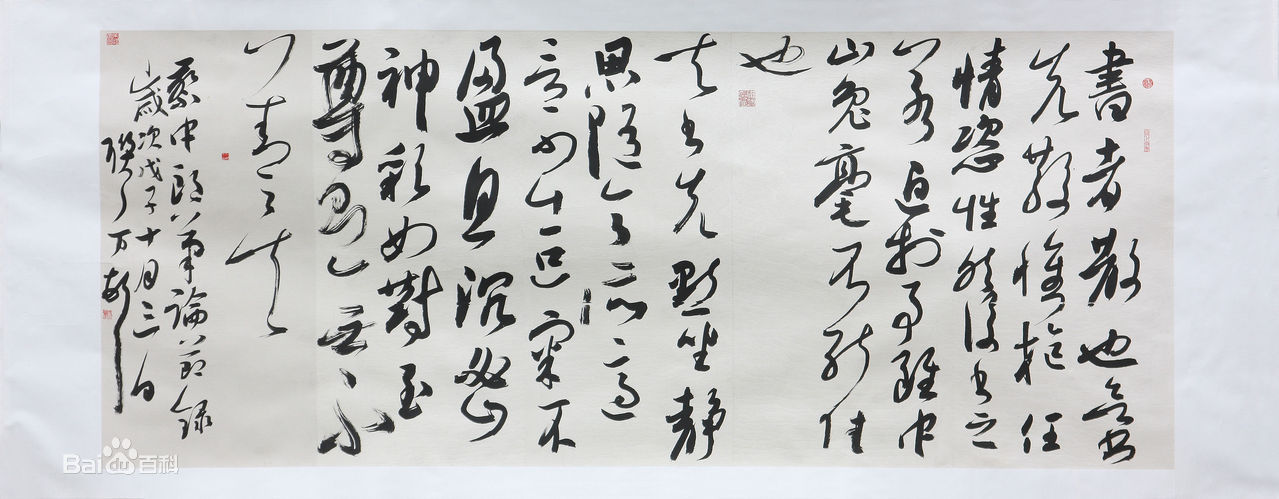 書者散也欲書
先散懷抱任
情恣性然後書之
若迫於事雖中
山兔毫不能佳
也
夫書先默坐靜
思隨意所適
言不出口氣不
盈息沉密
神彩如對至
尊則無不
善矣
蔡中郎筆論節錄
歲次戊子十月三日
Bai百科